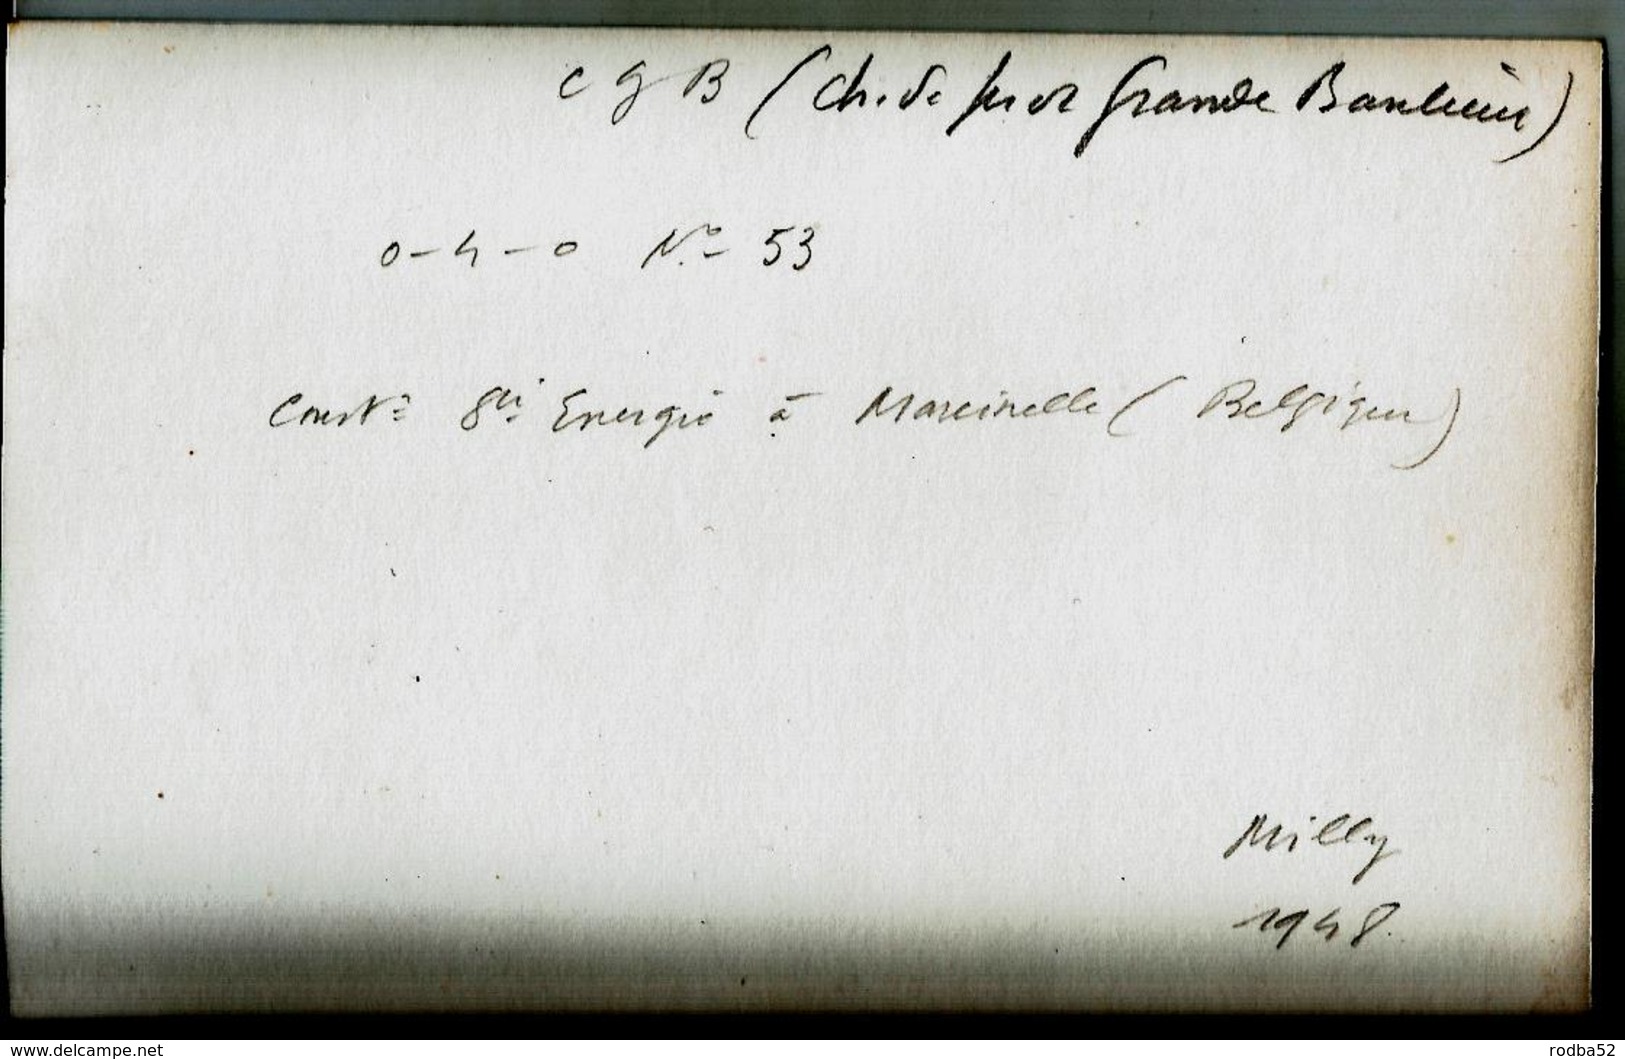 C G B (Ch. de fer de Grande Banlieue)
0-4-0 No 53
Const. Sté Energie à Marcinelle (Belgique)
Milly
1948
www.delcampe.net
rodba52